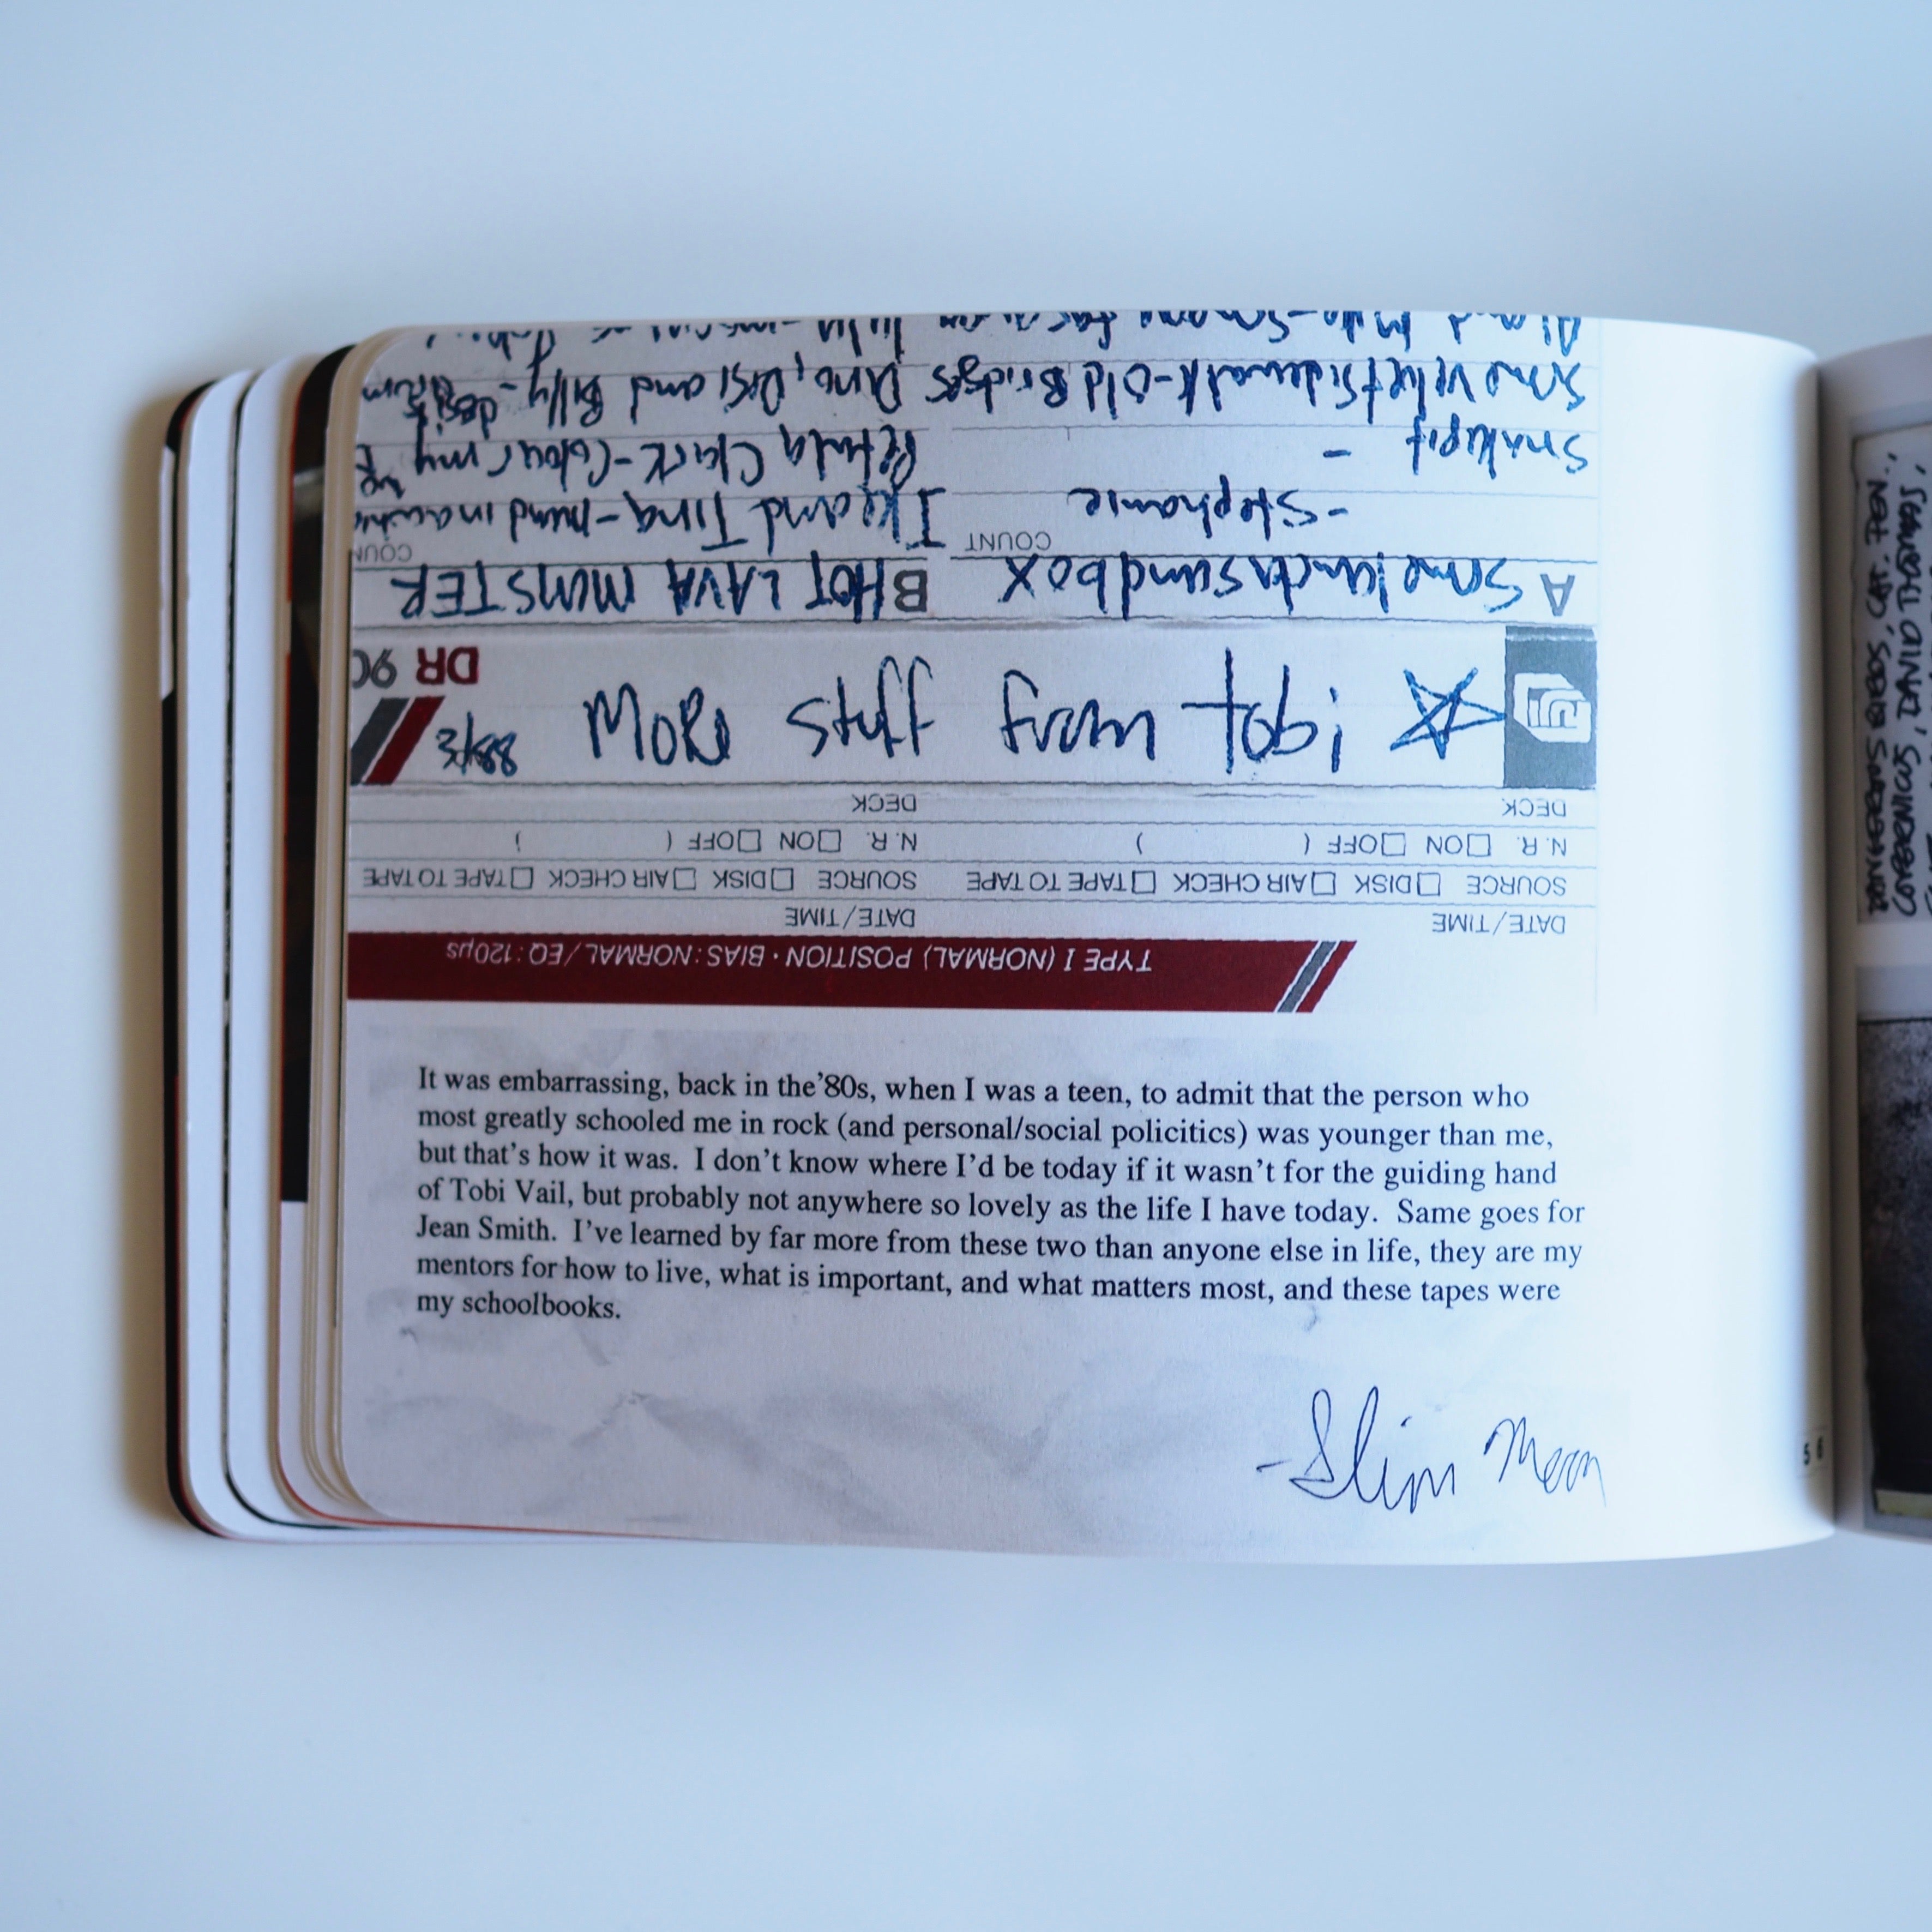 TYPE I (NORMAL) POSITION • BIAS: NORMAL/EQ: 120µs
DATE/TIME
DATE/TIME
SOURCE □DISK □AIR CHECK □TAPE TO TAPE
SOURCE □DISK □AIR CHECK □TAPE TO TAPE
N.R. □ON □OFF ( )
N.R. □ON □OFF ( )
DECK
DECK
i got way ROW
DR 90
A some sandbox
COUNT
-Stephanie
Snakepit -
some velvet sidewalk-old Bridges
B HOT LAVA MUNSTER
COUN
Ike and Tina-
Petula Clark-Colour my
Dino, Desi and Billy-
It was embarrassing, back in the'80s, when I was a teen, to admit that the person who
most greatly schooled me in rock (and personal/social policitics) was younger than me,
but that's how it was. I don't know where I'd be today if it wasn't for the guiding hand
of Tobi Vail, but probably not anywhere so lovely as the life I have today. Same goes for
Jean Smith. I've learned by far more from these two than anyone else in life, they are my
mentors for how to live, what is important, and what matters most, and these tapes were
my schoolbooks.
-Slim Moon
56
COPERNICUS, DAVID THOMAS,